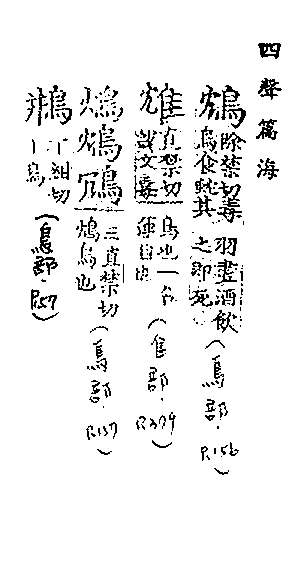 四聲篇海
鴆 除禁切毒鳥食蛇其羽畫酒飲之即死（鳥部．P.156）
直禁切說文毒鳥也一名運日也（隹部．P.379）
三直禁切鴆鳥也（鳥部．P.157）
丁紺切｜鳥（鳥部．P.157）